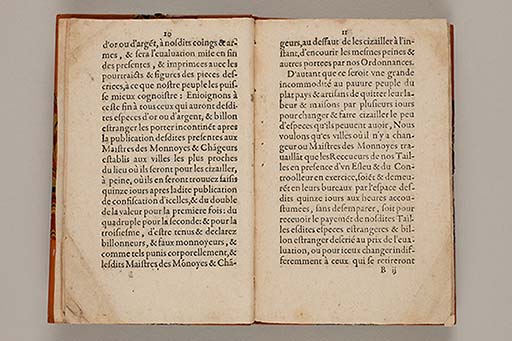 10
d'or ou d'argẽt, à nosdits coings & ar-
mes, & sera l'eualuation mise en fin
des presentes, & imprimees auec les
pourtraicts & figures des pieces des-
crites, à ce que nostre peuple les puis-
se mieux cognoistre: Enioignons à
ceste fin à tous ceux qui auront desdi-
tes especes d'or ou d'argent, & billon
estranger les porter incontinẽt apres
la publication desdites presentes aux
Maistres des Monnoyes & Chãgeurs
establis aux villes les plus proches
du lieu où ils seront pour les cizailler,
à peine, où ils en seront trouuez saisis
quinze iours apres ladite publication
de confiscation d'icelles, & du double
de la valeur pour la premiere fois: du
quadruple pour la seconde: & pour la
troisiesme, d'estre tenus & declarez
billonneurs, & faux monnoyeurs, &
comme tels punis corporellement, &
lesdits Maistres des Mõnoyes & Chã-
11
geurs, au deffaut de les cizailler à l'in-
stant, d'encourir les mesmes peines &
autres portees par nos Ordonnances.
D'autant que ce seroit vne grande
incommodité au pauure peuple du
plat pays & artisans de quitter leur la-
beur & maisons par plusieurs iours
pour changer & faire cizailler le peu
d'especes qu'ils peuuent auoir, Nous
voulons qu'es villes où il n'y a chan-
geur ou Maistres des Monnoyes tra-
uaillãt que les Receueurs de nos Tail-
les en presence d'vn Esleu & du Con-
troolleur en exercice, soiẽt & demeu-
rẽt en leurs bureaux par l'espace des-
dits quinze iours aux heures accou-
stumees, sans desemparer, soit pour
receuoir le payemẽt de nosdites Tail-
les esdites especes estrangeres & bil-
lon estranger descrié au prix de l'eua-
luation, ou pour iceux changer indif-
feremment à ceux qui se retireront
B ij